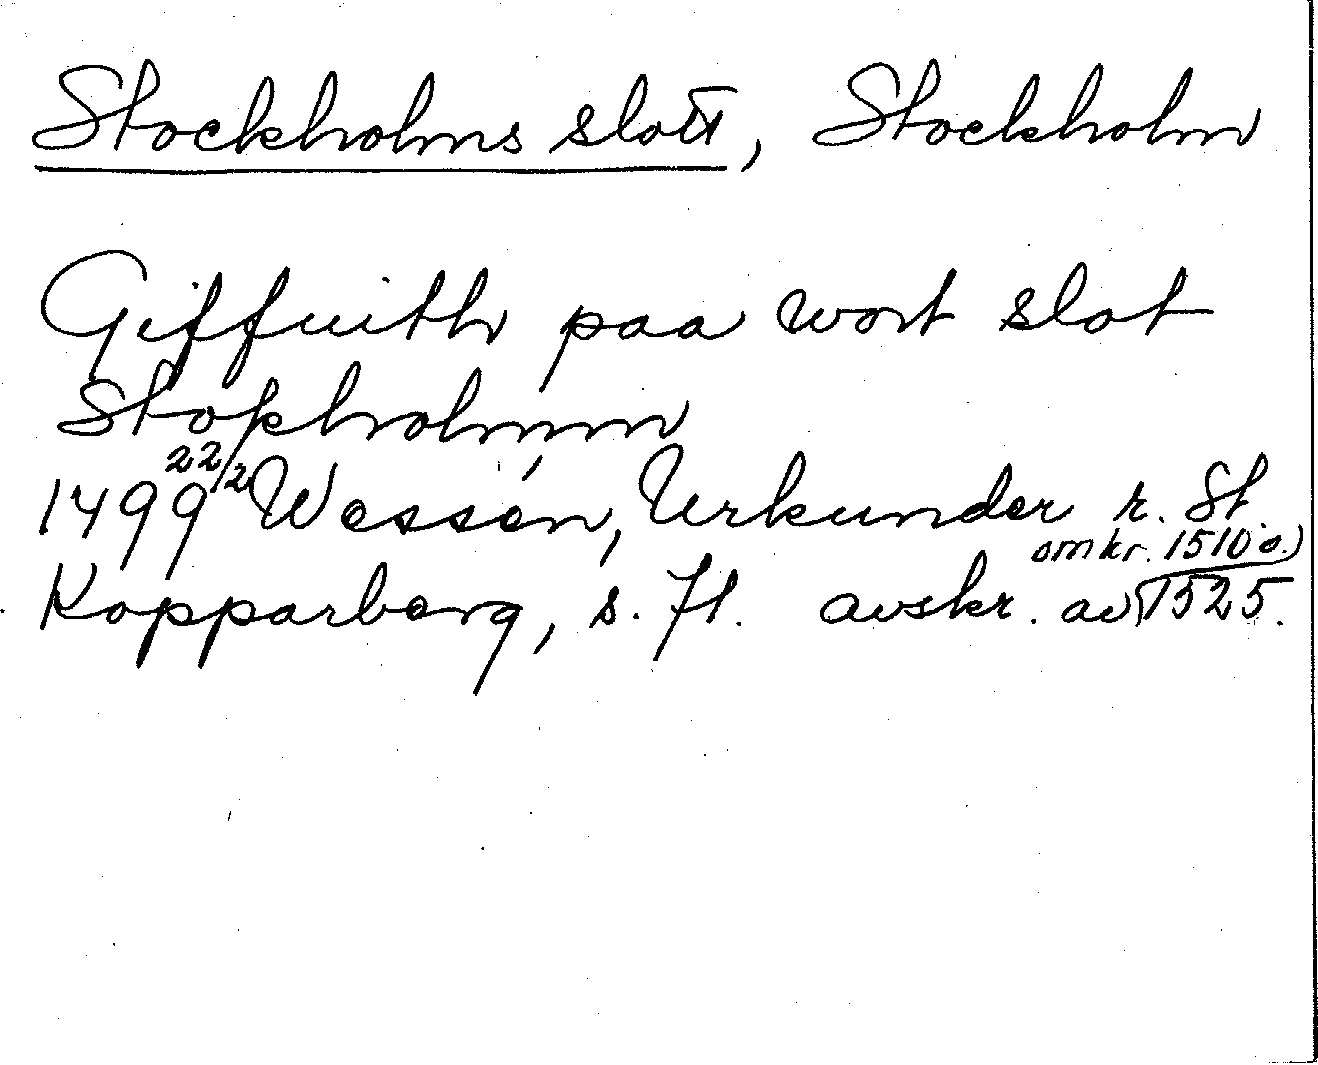 Stockholms slott, Stockholm
Giffuith paa wort slot
Stokholmm
1499 22/2 Wessén, Urkunder r. St.
omkr. 1510 o.)
Kopparberg, s. 71. avskr. av 1525.